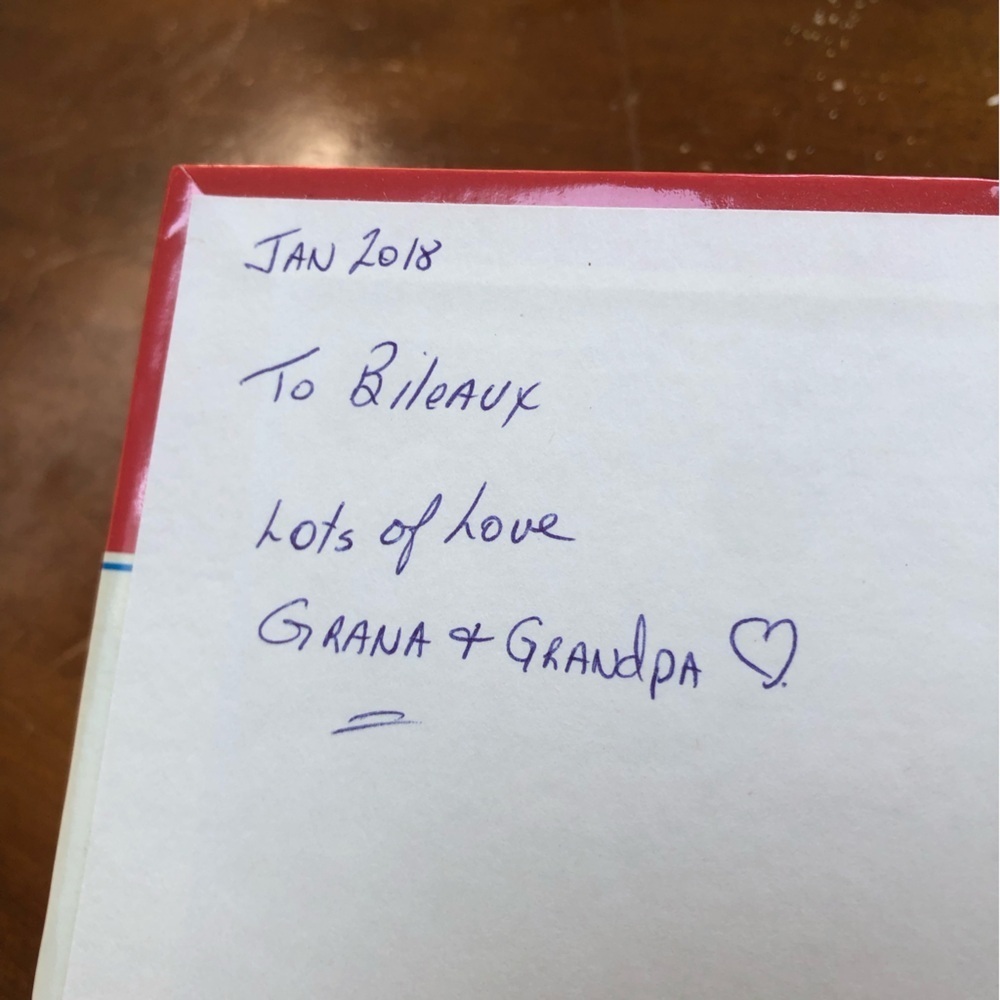 JAN 2018
To Bileaux
Lots of Love
GRANA & GRANdPA ♡